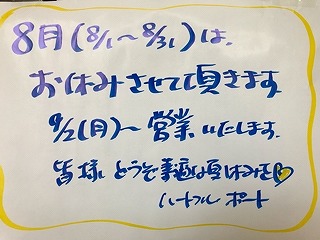 8月(8/1～8/31)は、
お休みさせて頂きます
9/2(月)～営業いたします。
皆様 どうぞ素適な夏休みを
ハートフル ポート